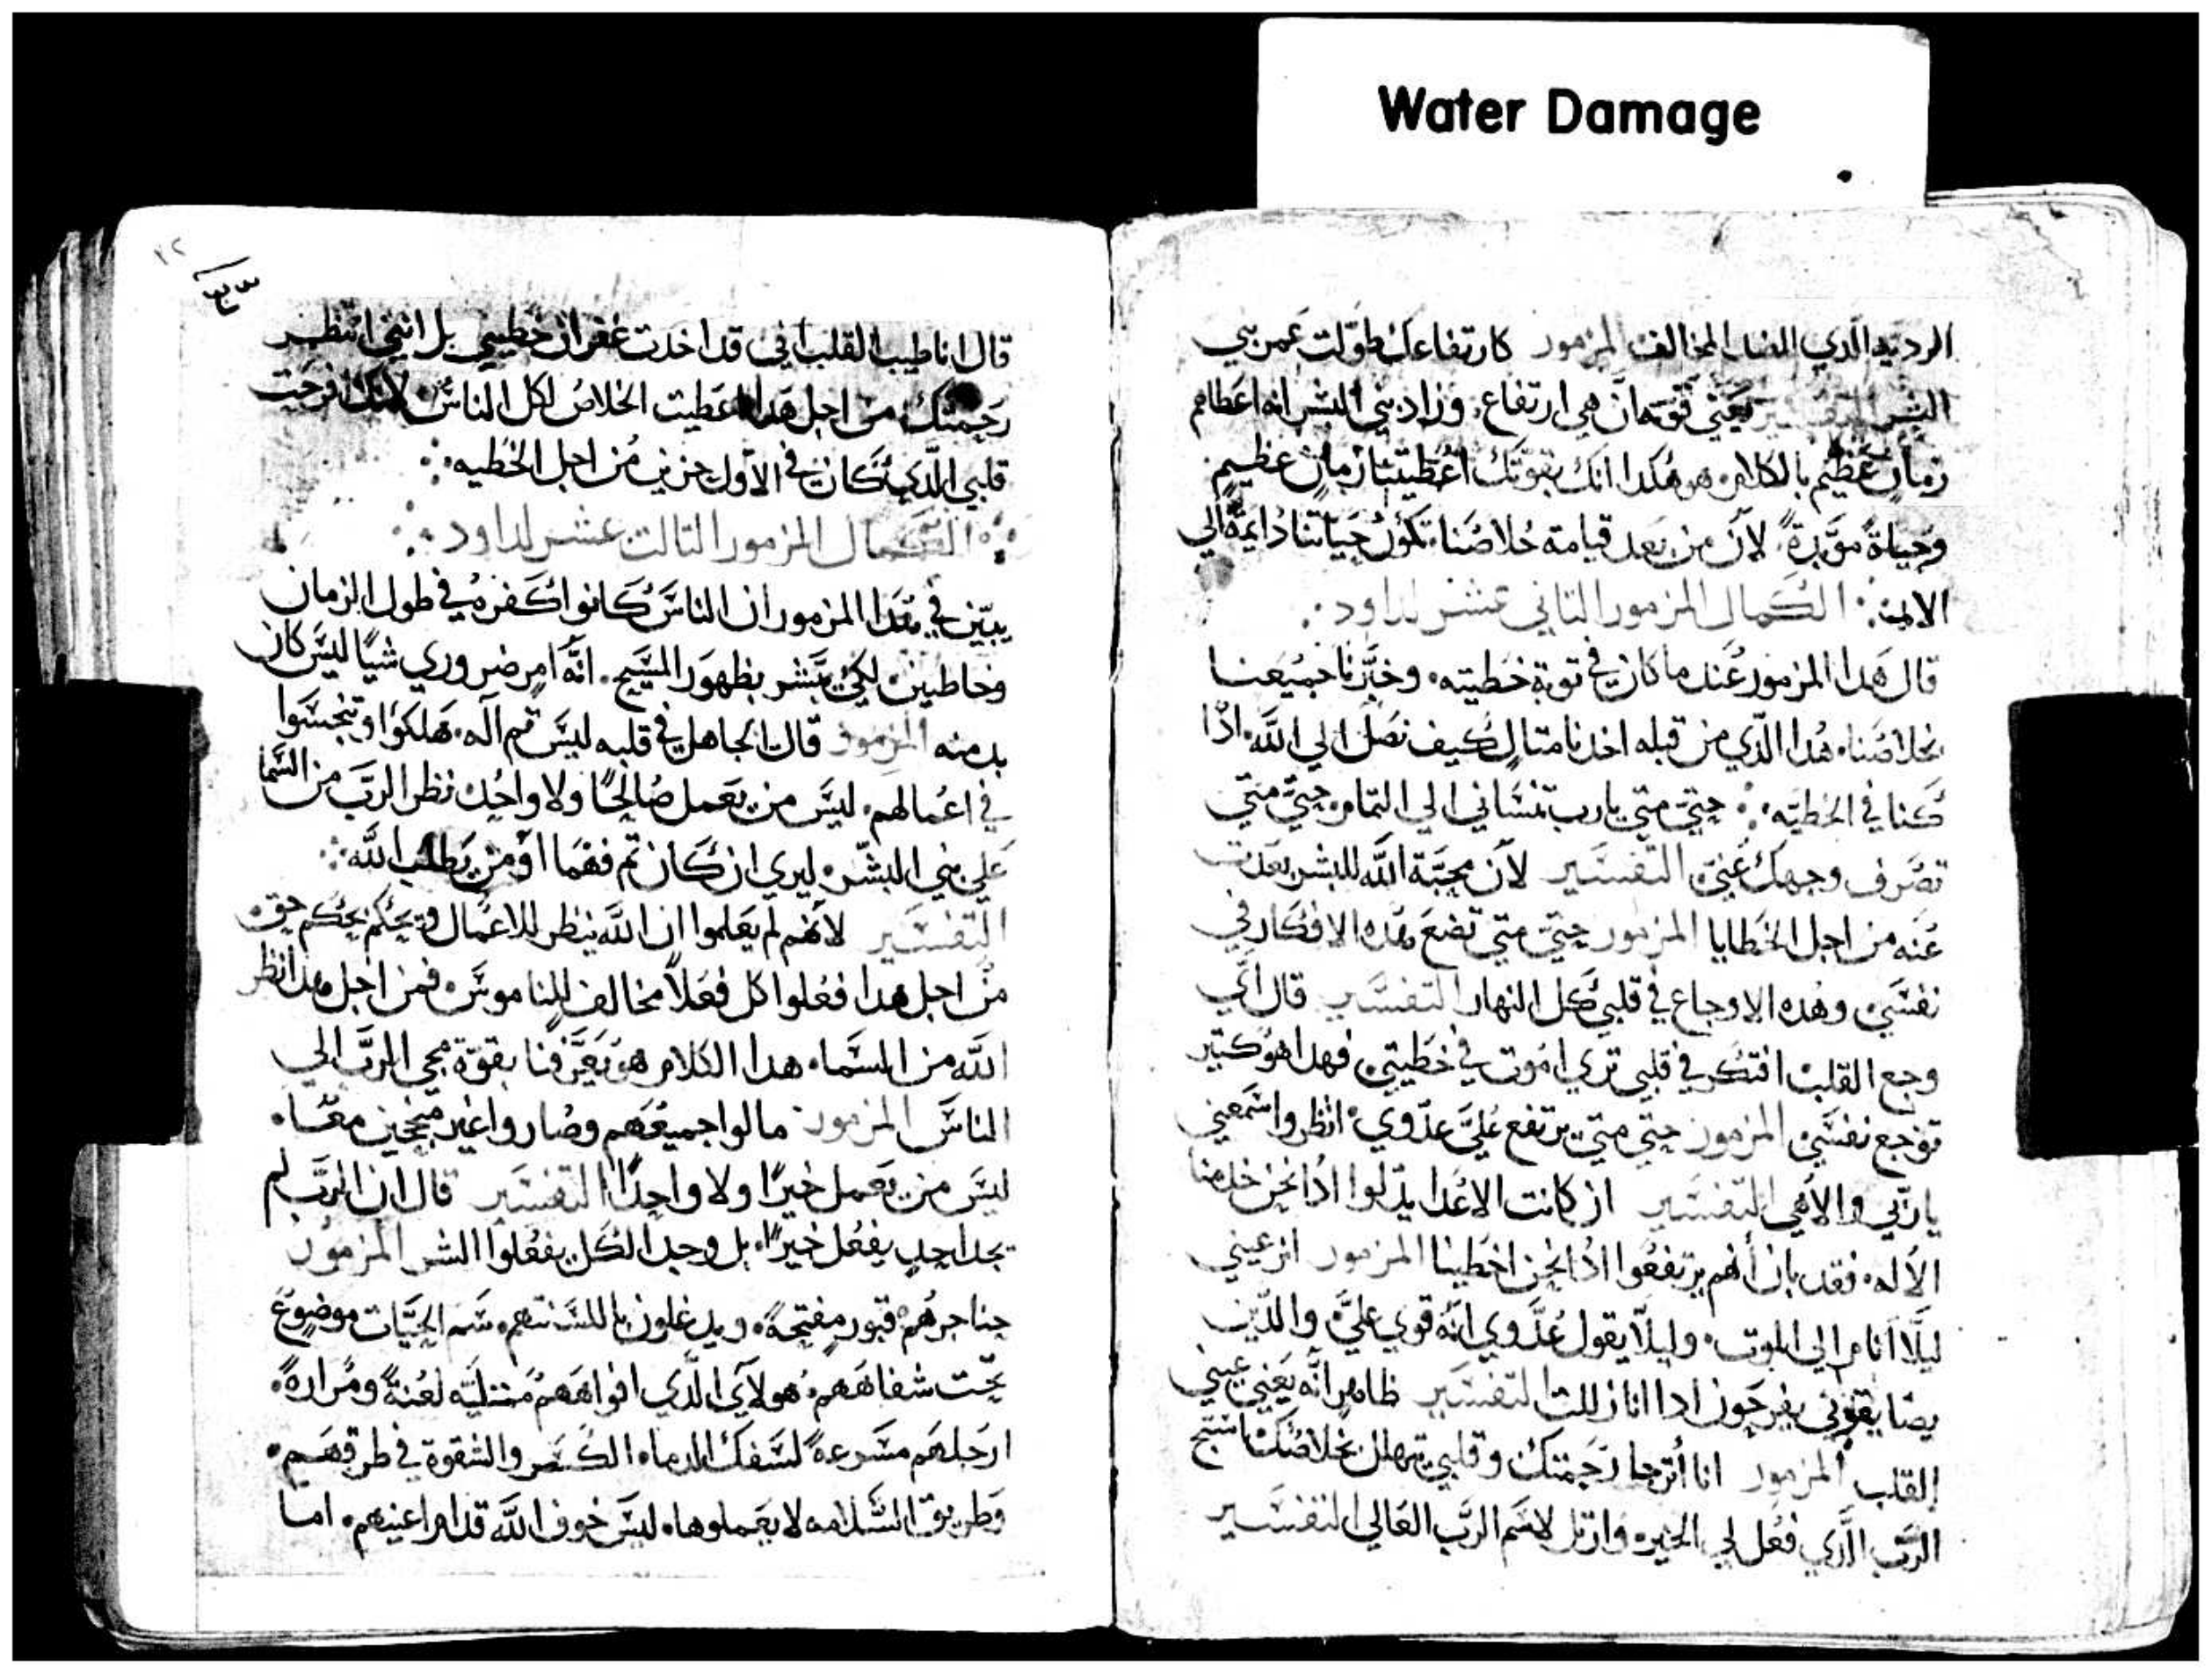 Water Damage
الرديه الدي المخالف المزمور كارتفاعك طولت عمر بني
البشر التفسير يعني قوته ان هي ارتفاع. وزاد بني البشر انه اعطاهم
زمان عظيم بالكلام هو هكدا انك بقوتك اعطيتنا زمان عظيم
وحياة موبدة. لان من بعد قيامة خلاصنا تكون حياتنا دايمة الي
الابد: الكمال المزمور التاني عشر لداود
قال هدا المزمور عند ما كان في توبة خطيته. وخبرنا جميعنا
بخلاصنا. هدا الدي من قبله اخدنا متال كيف نصل الي الله. ادا
كنا في الخطيه: حتي متي يارب تنساني الي التمام حتي متي
تصرف وجهك عني التفسير لان محبة الله للبشر بعدت
عنه من اجل الخطايا المزمور حتي متي تضع هده الافكار في
نفسي وهده الاوجاع في قلبي كل النهار التفسير قال اني
وجع القلب افتكر في قلبي تري اموت في خطيتي فهدا هو كتير
توجع نفسي المزمور حتي متي يرتفع علي عدوي. انظر واسمعني
ياربي والاهي التفسير ان كانت الاعدا يدلوا ادا نحن خدمنا
الاله. فقد بان انهم يرتفعوا ادا نحن اخطينا المزمور انر عيني
ليلا انام الي الموت. وليلا يقول عدوي انه قوي علي. والدين
يضايقوني يفرحون ادا انا زللت التفسير ظاهر انه يعني عيني
القلب المزمور انا اترجا رحمتك وقلبي يتهلل بخلاصك اسبح
الرب الدي فعل لي الخير. وارتل لاسم الرب العالي التفسير
١٢
قال انا طيب القلب اني قد اخدت غفران خطيتي بل انني انتظر
رحمتك. من اجل هدا اعطيت الخلاص لكل الناس. لانك افرحت
قلبي الدي كان في الاول حزين من اجل الخطيه:
الكمال المزمور التالت عشر لداود
يبين في هدا المزمور ان الناس كانوا كفره في طول الزمان
وخاطين. لكي يبشر بظهور المسيح. انه امر ضروري شيا ليس كان
بد منه المزمور قال الجاهل في قلبه ليس تم اله. هلكوا وتنجسوا
في اعمالهم. ليس من يعمل صالحا ولا واحد. نظر الرب من السما
علي بني البشر. ليري ان كان تم فهما او من يطلب الله:
التفسير لانهم لم يعلموا ان الله ينظر للاعمال ويحكم بحكم حق.
من اجل هدا فعلوا كل فعلا مخالف للناموس. فمن اجل هدا نظر
الله من السما. هدا الكلام هو يعرفنا بقوة مجي الرب الي
الناس المزمور مالوا جميعهم وصاروا غير منجحين معا.
ليس من يعمل خيرا ولا واحدا التفسير قال ان الرب لم
يجد احد يفعل خيرا. بل وجد الكل يفعلوا الشر المزمور
حناجرهم قبور مفتحة. ويدغلون بالسنتهم. سم الحيات موضوع
تحت شفاههم. هولاي الدي افواههم ممتليه لعنة ومرارة.
ارجلهم مسرعة لسفك الدما. الكسر والشقوة في طرقهم.
وطريق السلامه لا يعملوها. ليس خوف الله قدام اعينهم. اما